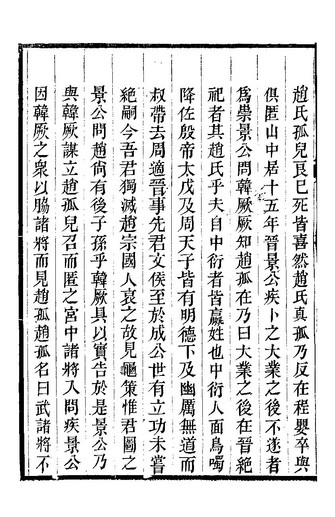 趙氏孤兒良已死皆喜然趙氏真孤乃反在程嬰卒與
俱匿山中居十五年晉景公疾卜之大業之後不遂者
爲祟景公問韓厥厥知趙孤在乃曰大業之後在晉絕
祀者其趙氏乎夫自中衍者皆嬴姓也中衍人面鳥噣
降佐殷帝太戊及周天子皆有明德下及幽厲無道而
叔帶去周適晉事先君文侯至於成公世有立功未嘗
絕嗣今吾君獨滅趙宗國人哀之故見龜策惟君圖之
景公問趙尙有後子孫乎韓厥具以實告於是景公乃
與韓厥謀立趙孤兒召而匿之宮中諸將入問疾景公
因韓厥之衆以脇諸將而見趙孤趙孤名曰武諸將不